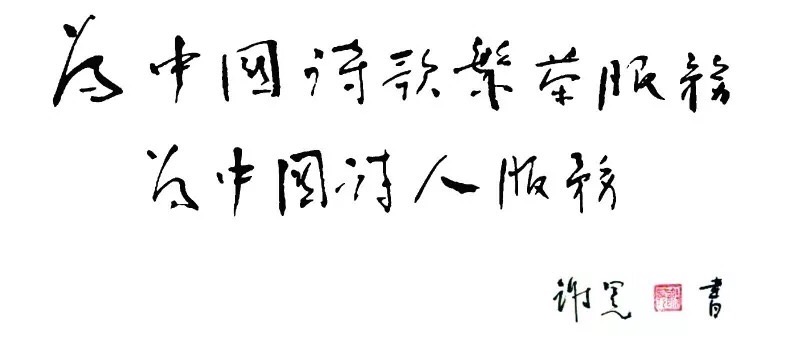 为中國诗歌繁荣服務
为中国诗人服務
谢冕 書